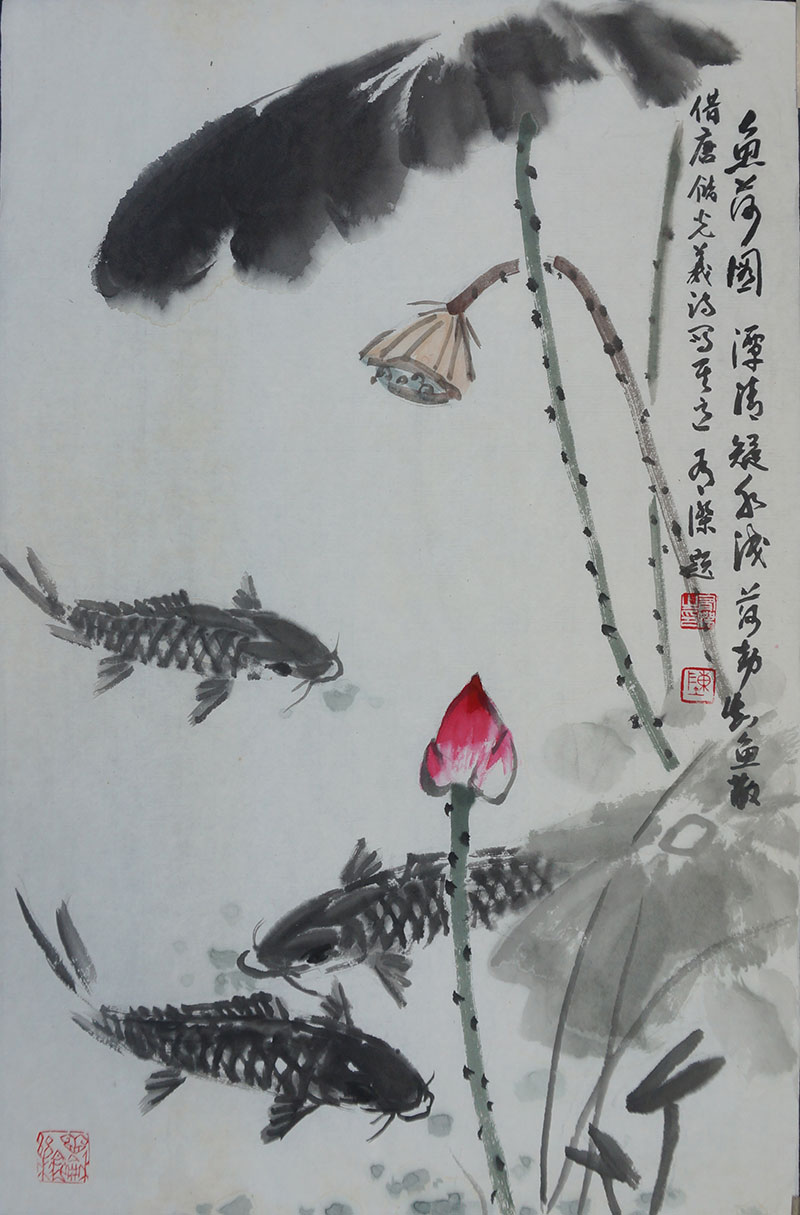 鱼荷图 潭清疑水浅 荷动知鱼散
借唐储光羲诗写其意 傑题
陳